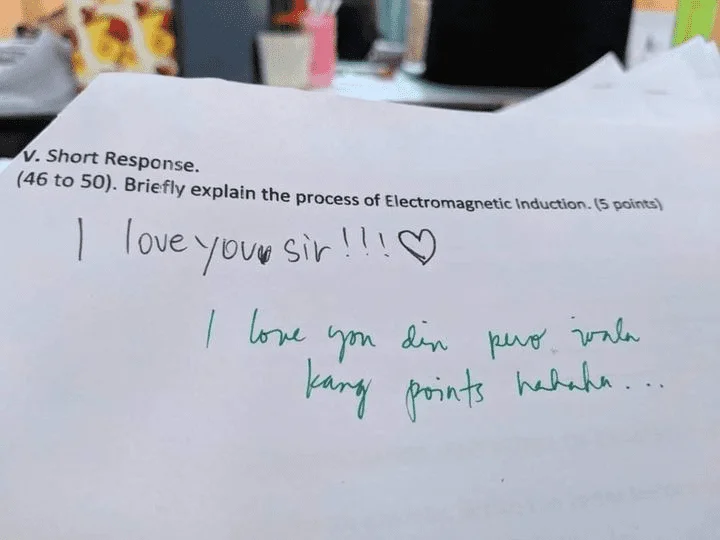 V. Short Response.
(46 to 50). Briefly explain the process of Electromagnetic Induction. (5 points)
I love you sir!!! ♡
I love you din pero wala
kang points hahaha...